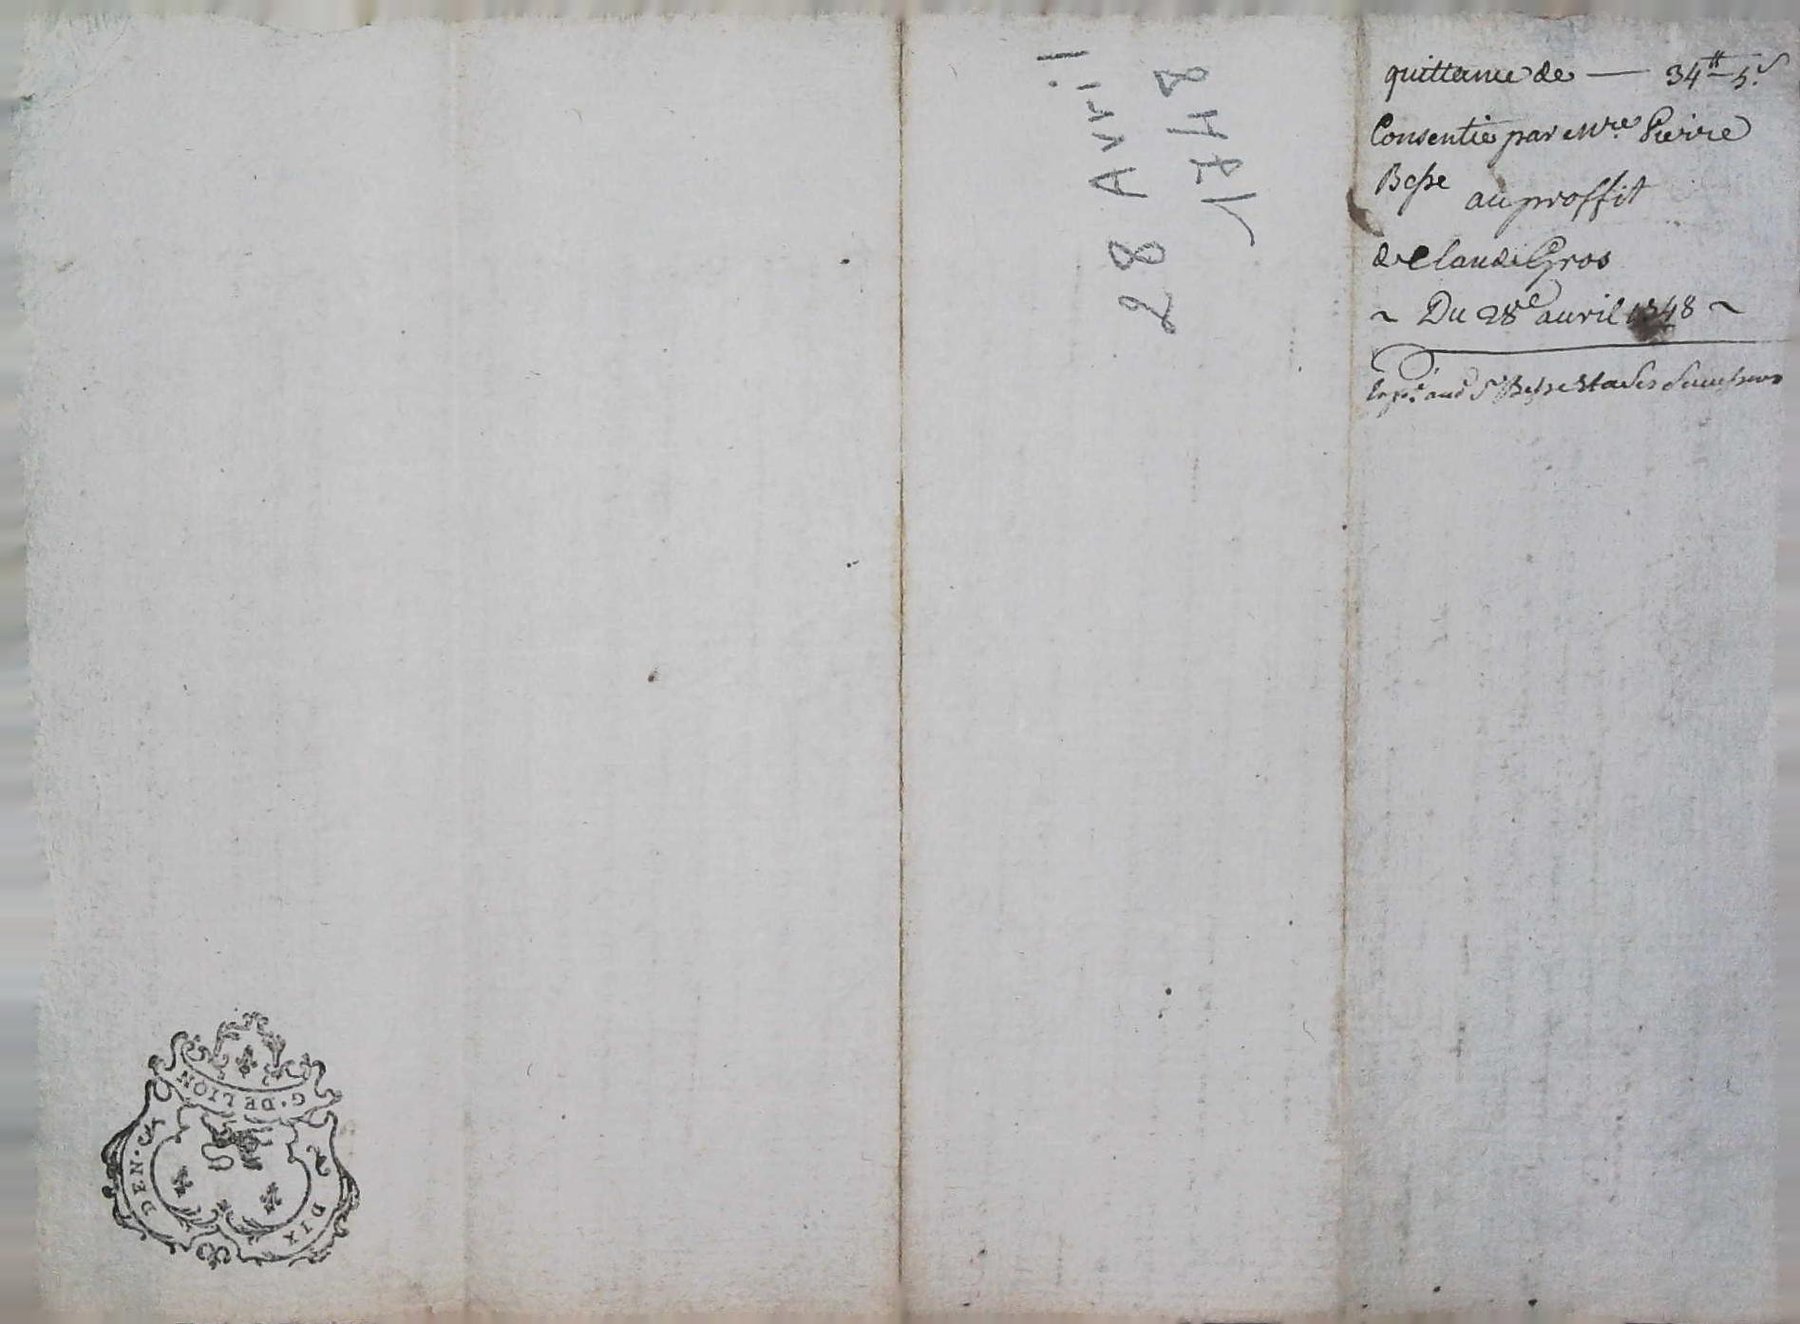 quittance de — 34tt 5s
Consentie par Mre Pierre
Besse au proffit
de Claude Gros
~ Du 28e auril 1748 ~
28 Avril
1748
G. DE LION
DIX
DEN.